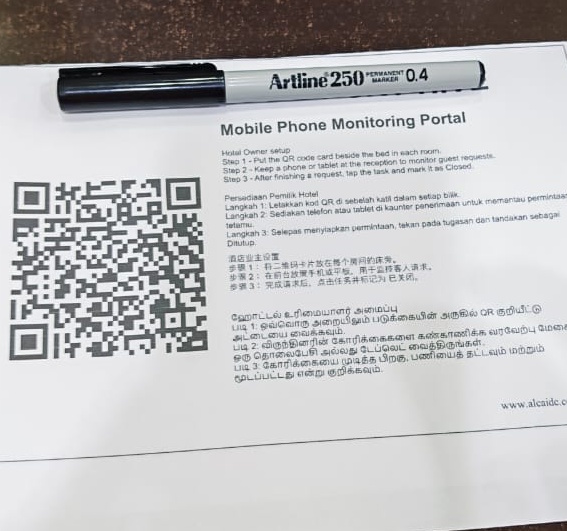 Artline 250 PERMANENT MARKER 0.4
Mobile Phone Monitoring Portal
Hotel Owner setup
Step 1 - Put the QR code card beside the bed in each room.
Step 2 - Keep a phone or tablet at the reception to monitor guest requests.
Step 3 - After finishing a request, tap the task and mark it as Closed.
Persediaan Pemilik Hotel
Langkah 1: Letakkan kod QR di sebelah katil dalam setiap bilik.
Langkah 2: Sediakan telefon atau tablet di kaunter penerimaan untuk memantau permintaa
tetamu.
Langkah 3: Selepas menyiapkan permintaan, tekan pada tugasan dan tandakan sebagai
Ditutup.
酒店业主设置
步骤 1：将二维码卡片放在每个房间的床旁。
步骤 2：在前台放置手机或平板，用于监控客人请求。
步骤 3：完成请求后，点击任务并标记为 已关闭。
ஹோட்டல் உரிமையாளர் அமைப்பு
படி 1: ஒவ்வொரு அறையிலும் படுக்கையின் அருகில் QR குறியீட்டு
அட்டையை வைக்கவும்.
படி 2: விருந்தினரின் கோரிக்கைகளை கண்காணிக்க வரவேற்பு மேசை
ஒரு தொலைபேசி அல்லது டேப்லெட் வைத்திருங்கள்.
படி 3: கோரிக்கையை முடித்த பிறகு, பணியைத் தட்டவும் மற்றும்
மூடப்பட்டது என்று குறிக்கவும்.
www.alcaidc.c